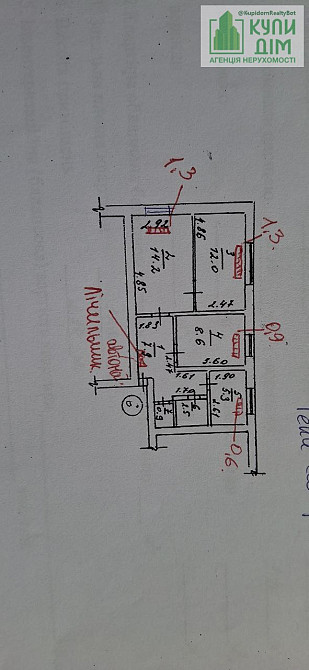 @KupidomRealtyBot
КУПИ
ДІМ
АГЕНЦІЯ НЕРУХОМОСТІ
1,3
1,3
2.92
4.86
3
12.0
2
14.2
4.85
2.47
0,9
1.83
4
8.6
1
3.60
1.47
Лічильник
1.61
1.90
1.70
5
6
1.5
7
0.9
1.61
0,6